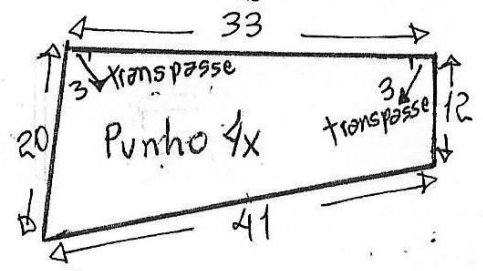 33
3 transpasse
3
transpasse
20
12
Punho 4x
41